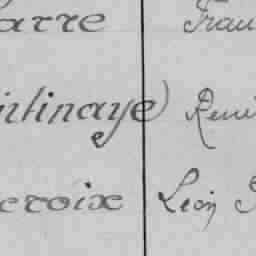 arre Fran
intinaye René
croix Léon